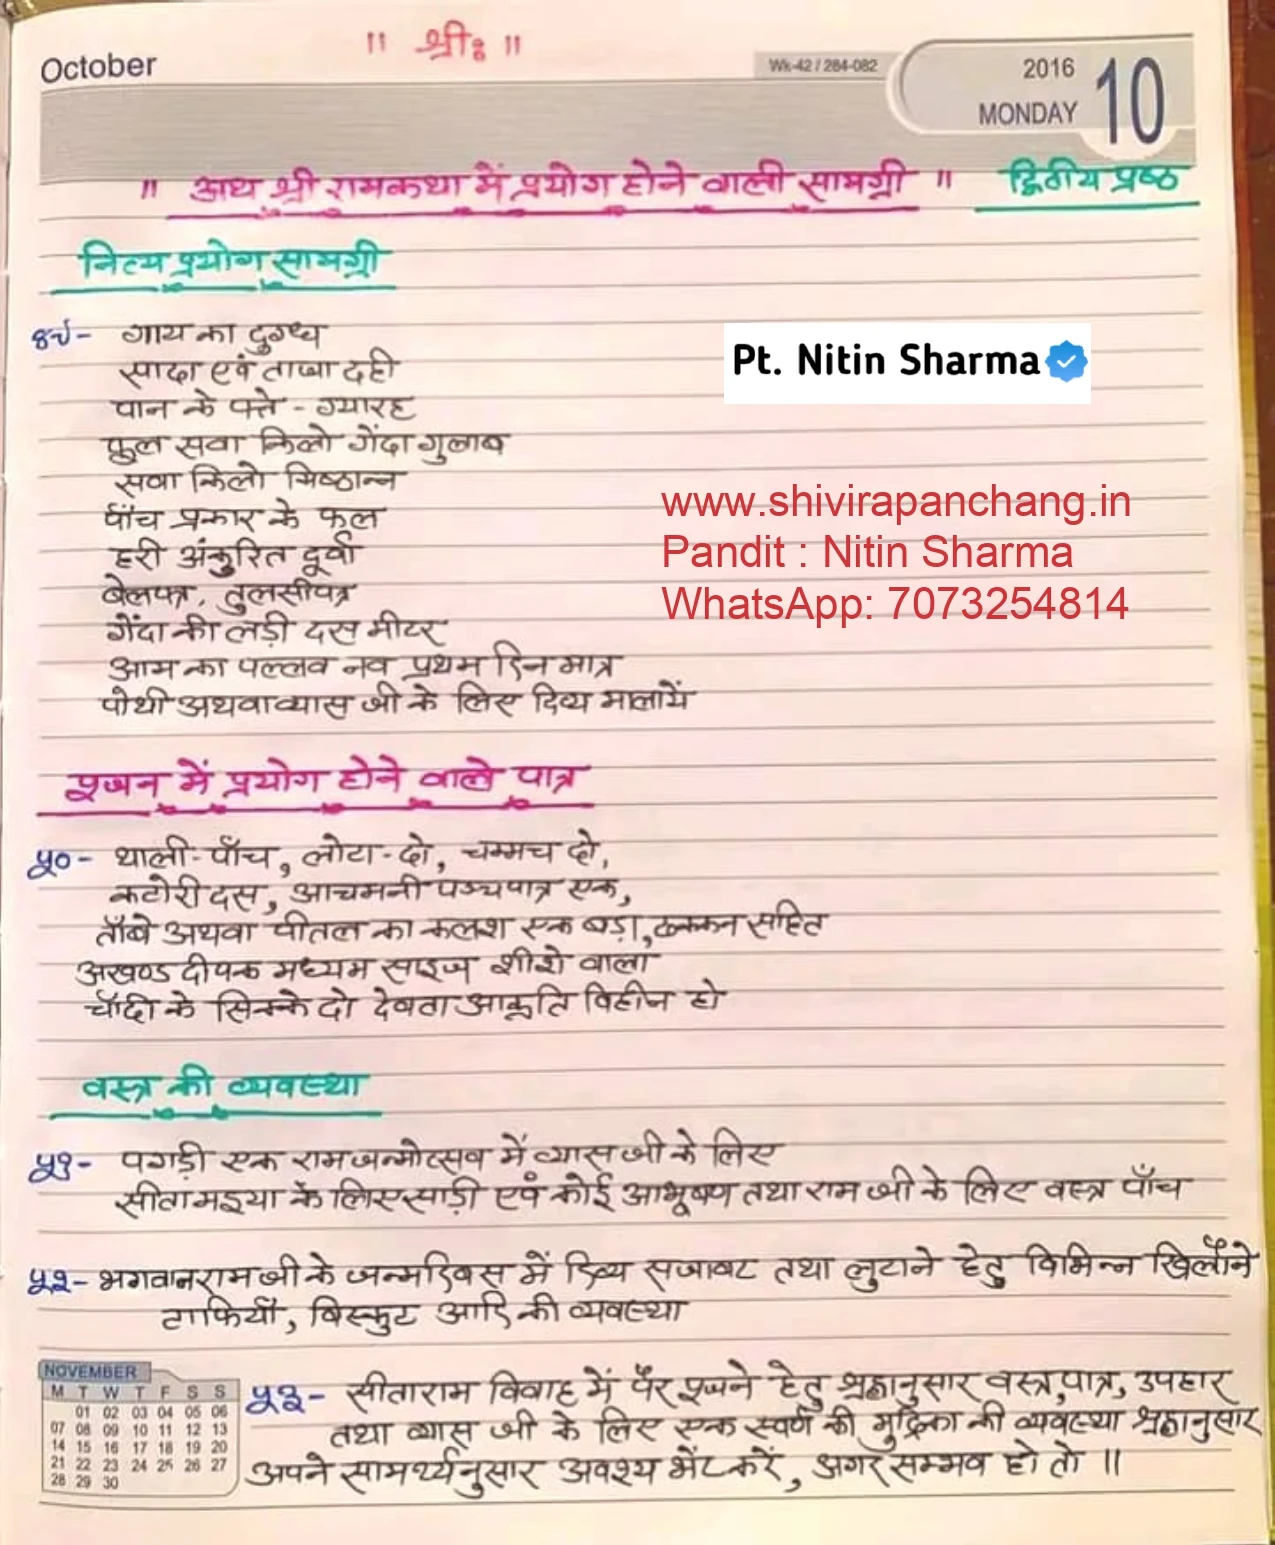 ॥ श्रीः ॥
October
Wk-42 / 284-082
2016
MONDAY
10
॥ अथ श्री रामकथा में प्रयोग होने वाली सामग्री ॥ द्वितीय प्रष्ठ
नित्य प्रयोग सामग्री
४९- गाय का दुग्ध
सादा एवं ताजा दही
पान के पत्ते - ग्यारह
फुल सवा किलो गेंदा गुलाब
सवा किलो मिष्ठान्न
पाँच प्रकार के फल
हरी अंकुरित दूर्वा
बेलपत्र, तुलसीपत्र
गेंदा की लड़ी दस मीटर
आम का पल्लव नव प्रथम दिन मात्र
पोथी अथवा व्यास जी के लिए दिव्य मालायें
Pt. Nitin Sharma
www.shivirapanchang.in
Pandit : Nitin Sharma
WhatsApp: 7073254814
पूजन में प्रयोग होने वाले पात्र
५०- थाली-पाँच, लोटा-दो, चम्मच दो,
कटोरी दस, आचमनी पञ्चपात्र एक,
ताँबे अथवा पीतल का कलश एक बड़ा, ढक्कन सहित
अखण्ड दीपक मध्यम साइज शीशे वाला
चाँदी के सिक्के दो देवता आकृति विहीन हो
वस्त्र की व्यवस्था
५१- पगड़ी एक राम जन्मोत्सव में व्यास जी के लिए
सीता मइया के लिए साड़ी एवं कोई आभूषण तथा राम जी के लिए वस्त्र पाँच
५२- भगवान राम जी के जन्मदिवस में दिव्य सजावट तथा लुटाने हेतु विभिन्न खिलौने
टाफियाँ, बिस्कुट आदि की व्यवस्था
५३- सीताराम विवाह में पैर पूजने हेतु श्रद्धानुसार वस्त्र, पात्र, उपहार
तथा व्यास जी के लिए एक स्वर्ण की मुद्रिका की व्यवस्था श्रद्धानुसार
अपने सामर्थ्यनुसार अवश्य भेंट करें, अगर सम्भव हो तो ॥
NOVEMBER
M T W T F S S
01 02 03 04 05 06
07 08 09 10 11 12 13
14 15 16 17 18 19 20
21 22 23 24 25 26 27
28 29 30